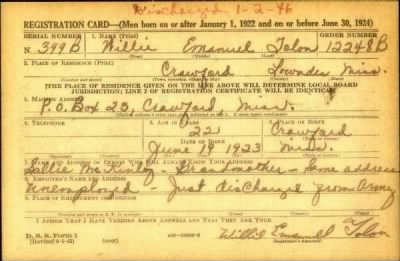 Discharged 1-2-46
REGISTRATION CARD—(Men born on or after January 1, 1922 and on or before June 30, 1924)
SERIAL NUMBER 1. NAME (Print) ORDER NUMBER
N 399B Willie Emanuel Tolon 12248B
2. PLACE OF RESIDENCE (Print)
Crawford Lowndes Miss.
[THE PLACE OF RESIDENCE GIVEN ON THE LINE ABOVE WILL DETERMINE LOCAL BOARD
JURISDICTION; LINE 2 OF REGISTRATION CERTIFICATE WILL BE IDENTICAL]
3. MAILING ADDRESS
P.O. Box 23, Crawford, Miss.
4. TELEPHONE 5. AGE IN YEARS 6. PLACE OF BIRTH
22 Crawford
DATE OF BIRTH
June 19 1923 Miss.
7. NAME AND ADDRESS OF PERSON WHO WILL ALWAYS KNOW YOUR ADDRESS
Sallie McKinley - Grandmother - Same address
8. EMPLOYER'S NAME AND ADDRESS
Unemployed - Just discharged from Army
9. PLACE OF EMPLOYMENT OR BUSINESS
I AFFIRM THAT I HAVE VERIFIED ABOVE ANSWERS AND THAT THEY ARE TRUE.
D. S. S. Form 1 Willie Emanuell Tolon
(over)